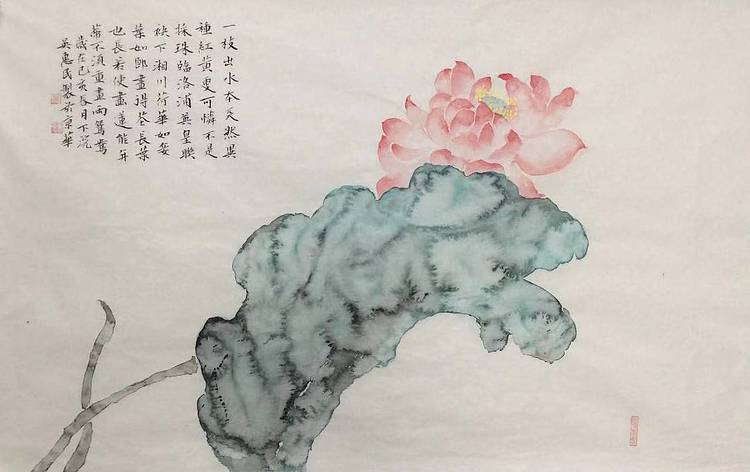 一枝出水本天然異
種紅黃更可憐不是
採珠臨洛浦英皇聯
袂下湘川荷華如妾
葉如郎畫得花長葉
也長若使畫蓮能并
蒂不須重畫兩鴛鴦
歲在己亥春月下浣
吳惠民製於京華